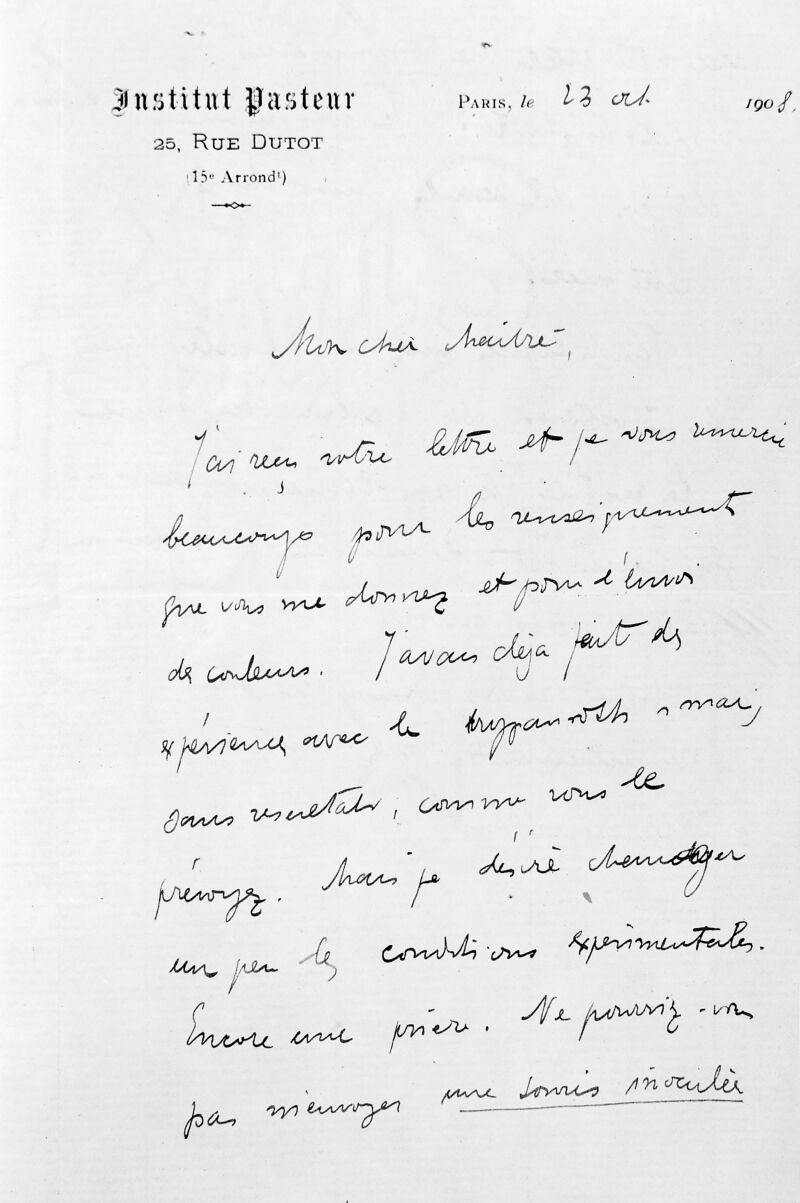 Institut Pasteur
25, RUE DUTOT
(15e Arrondt)
PARIS, le 23 oct. 1908.
Mon cher Maître,
J'ai reçu votre lettre et je vous remercie
beaucoup pour les renseignements
que vous me donnez et pour l'envoi
des couleurs. J'avais déja fait des
expériences avec le trypanroth mais
sans resultats, comme vous le
prévoyez. Mais je désire changer
un peu les conditions expérimentales.
Encore une prière. Ne pourriez-vous
pas m'envoyer une souris inoculée